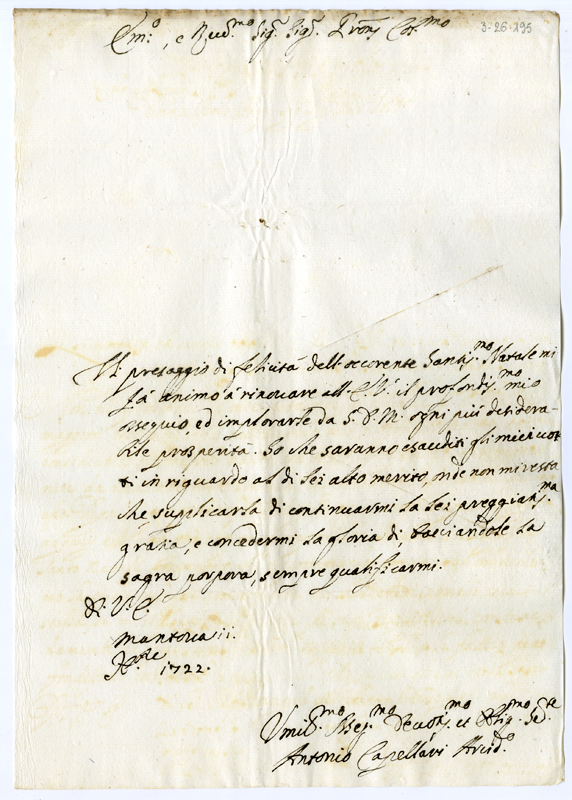 Em:o, e Rev.mo Sig.r Sig.r Pron. Col.mo
3-26-295
Il presaggio di felicità dell'occorente Santis.mo Natale mi
fà animo à rinovare all'E.V. il profondis.mo mio
ossequio, ed implorarle da S.D.M. ogni più desidera-
bile prosperità. So che saranno esauditi gli miei vot-
ti in riguardo al di lei alto merito, onde non mi resta
che supplicarla di continuarmi la lei preggiatis.ma
gratia, e concedermi la gloria di, bacciandole la
sagra porpora, sempre qualificarmi.
Di V.E.
Mantova ii.
X.bre 1722.
Umil.mo Osseq.mo Devotis.mo et Oblig.mo Ser.re
Antonio Capellari Arcid.o